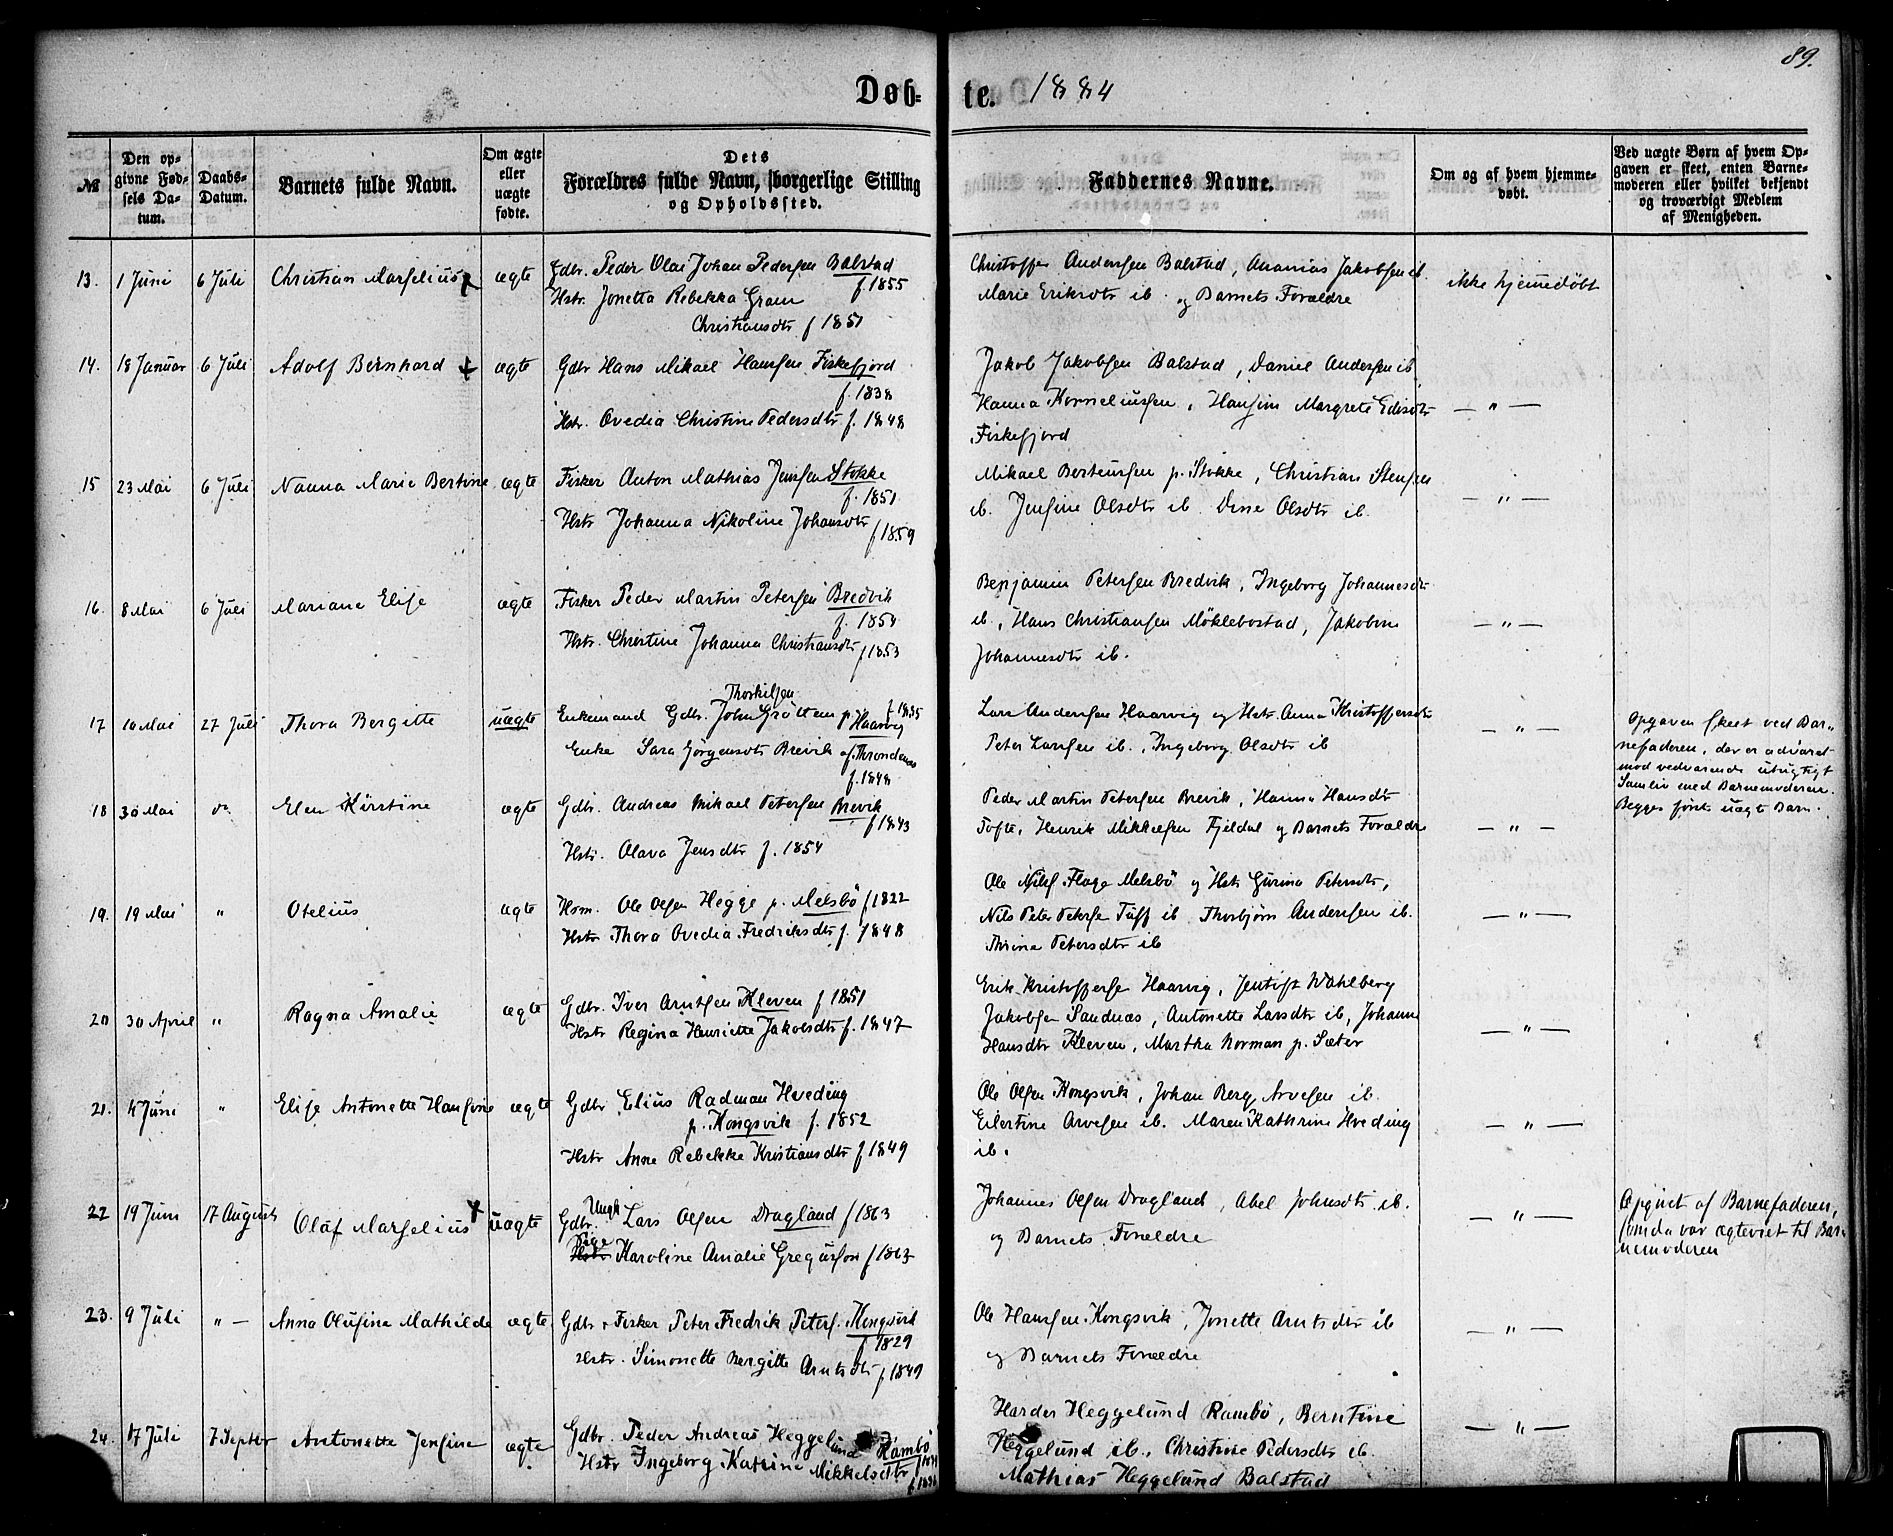 89.
Døb-te. 1884
№
Den opgivne Fødsels Datum.
Daabs-Datum.
Barnets fulde Navn.
Om ægte eller uægte fødte.
Dets Forældres fulde Navn, borgerlige Stilling og Opholdssted.
Faddernes Navne.
Om og af hvem hjemmedøbt.
Ved uægte Børn af hvem Opgaven er skeet, enten Barnemoderen eller hvilket bekjendt og troværdigt Medlem af Menigheden.
13. 1 Juni 6 Juli Christian Marselius ægte
Gdbr. Peder Olai Johan Pedersen Balstad
f. 1855
Hstr. Jonetta Rebekka Gram
Christiansdtr f 1851
Christoffer Andersen Balstad, Ananias Jakobsen ib.
Marie Eriksdtr ib. og Barnets Forældre
ikke hjemmedøbt
14. 18 Januar 6 Juli Adolf Bernhard ægte
Gdbr Hans Mikael Hansen Fiskefjord
f. 1838
Hstr. Ovedia Christine Pedersdtr f. 1848
Jakob Jakobsen Balstad, Daniel Andersen ib
Hanna Korneliussen, Hansine Margrete Edisdtr
Fiskefjord
— " —
15 23 Mai 6 Juli Nanna Marie Bertine ægte
Fisker Anton Mathias Jensen Stokke
f. 1851
Hstr Johanna Nikoline Johansdtr
f 1859
Mikael Berteussen p. Stokke, Christian Stensen
ib. Jensine Olsdtr ib. Dine Olsdtr ib.
— " —
16. 8 Mai 6 Juli Mariane Elise ægte
Fisker Peder Martin Petersen Bredvik
f. 1854
Hstr. Christine Johanna Christiansdtr f 1853
Benjamin Petersen Bredvik, Ingeborg Johannesdtr
ib., Hans Christiansen Möklebostad, Jakobine
Johannesdtr ib.
— " —
17 10 Mai 27 Juli Thora Bergitte uægte
Thorkilsen
Enkemand Gdbr. John Gröttem p. Haarvig f 1835
Enke Sara Jörgensdtr Brevik af Throndenes
f. 1848
Lars Andersen Haarvig og Hstr. Anna Kristoffersdtr
Peter Larsen ib., Ingeborg Olsdtr ib
— " —
Opgaven skeet ved Bar-
nefaderen, der er advaret
mod vedvarende utugtigt
Samliv med Barnemoderen.
Begges förste uægte Barn.
18 30 Mai do Elen Kirstine ægte
Gdbr. Andreas Mikael Petersen Brevik
f 1843
Hstr. Olava Jensdtr f. 1854
Peder Martin Petersen Brevik, Hanna Hansdtr
Tofte, Henrik Mikkelsen Fjeldal og Barnets Forældre
— " —
19. 19 Mai " Otelius ægte
Hsm. Ole Olsen Hegge p. Melsbö f 1822
Hstr Thora Ovedia Fredriksdtr f. 1848
Ole Nils Flage Melsbö og Hstr Gurina Petersdtr,
Nils Peter Peters Tuff ib Thorbjörn Andersen ib.
Thrine Petersdtr ib
— " —
20 30 April " Ragna Amalie ægte
Gdbr. Iver Arntsen Kleven f 1851
Hstr Regina Henriette Jakobsdtr f. 1847
Erik Kristoffers Haarvig, Jentoft Wahlberg
Jakobsen Sandnæs, Antonette Larsdtr ib, Johanne
Hansdtr Kleven, Martha Norman p. Sæter
— " —
21. 4 Juni " Elise Antonette Hansine ægte
Gdbr Elius Radman Hveding
p. Kongsvik f. 1852
Hstr Anne Rebekke Kristiansdtr f 1849
Ole Olsen Kongsvik, Johan Berg Arvesen ib.
Eilertine Arvesen ib. Maren Kathrine Hveding
ib.
— " —
22 19 Juni 17 August Olaf Marselius uægte
Ungk
Gdbr. Lars Olsen Dragland f 1863
Pige
Hstr Karoline Amalie Gregusson f 1863
Johannes Olsen Dragland, Abel Johnsdtr ib.
og Barnets Forældre
— " —
Opgivet af Barnefaderen,
som da var ægteviet til Bar-
nemoderen
23. 9 Juli " — Anna Olufine Mathilde ægte
Gdbr & Fisker Peter Fredrik Peters. Kongsvik
f 1829
Hstr. Simonette Bergitte Arntsdtr f 1849
Ole Hansen Kongsvik, Jonette Arntsdtr ib
og Barnets Forældre
— " —
24. 17 Juli 7 Septbr Antonette Jensine ægte
Gdbr. Peder Andreas Heggelund Rambö
Hstr Ingeborg Katrine Mikkelsdtr
Harder Heggelund Rambö, Berntine
Heggelund ib., Christine Pedersdtr ib.
Mathias Heggelund Balstad
— " —